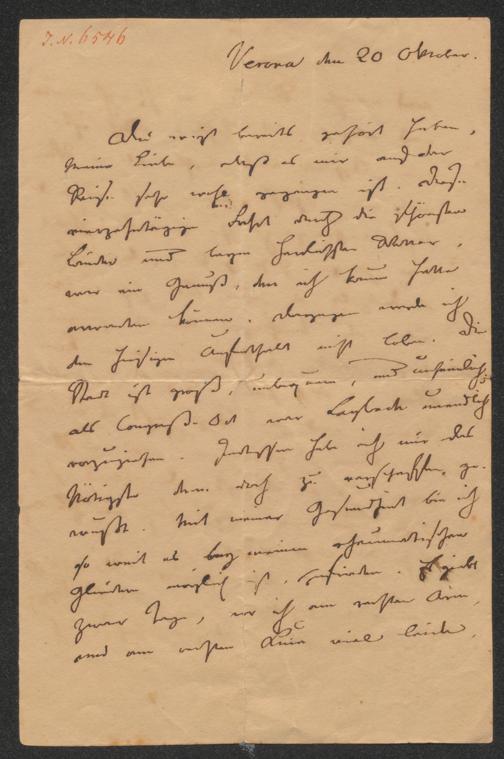 I. N. 6546
Verona den 20 Oktober.
Du wirst bereits gehört haben,
meine Liebe, daß es mir auf der
Reise sehr wohl gegangen ist. Diese
vierzehntägige Fahrt durch die schönsten
Länder und beym herrlichsten Wetter,
war ein Genuß, den ich kaum hatte
erwarten können. Dagegen werde ich
den hiesigen Aufenthalt nicht loben. Die
Stadt ist groß, unbequem, und unheimlich;
als Congreß-Ort war Laybach unendlich
vorzuziehen. Indessen habe ich mir das
Nötigste denn doch zu verschaffen ge-
wußt. Mit meiner Gesundheit bin ich
so weit es bey meinen rheumatischen
Gliedern möglich ist, zufrieden. Es giebt
zwar Tage, wo ich am rechten Arm,
und am rechten Knie viel leide,